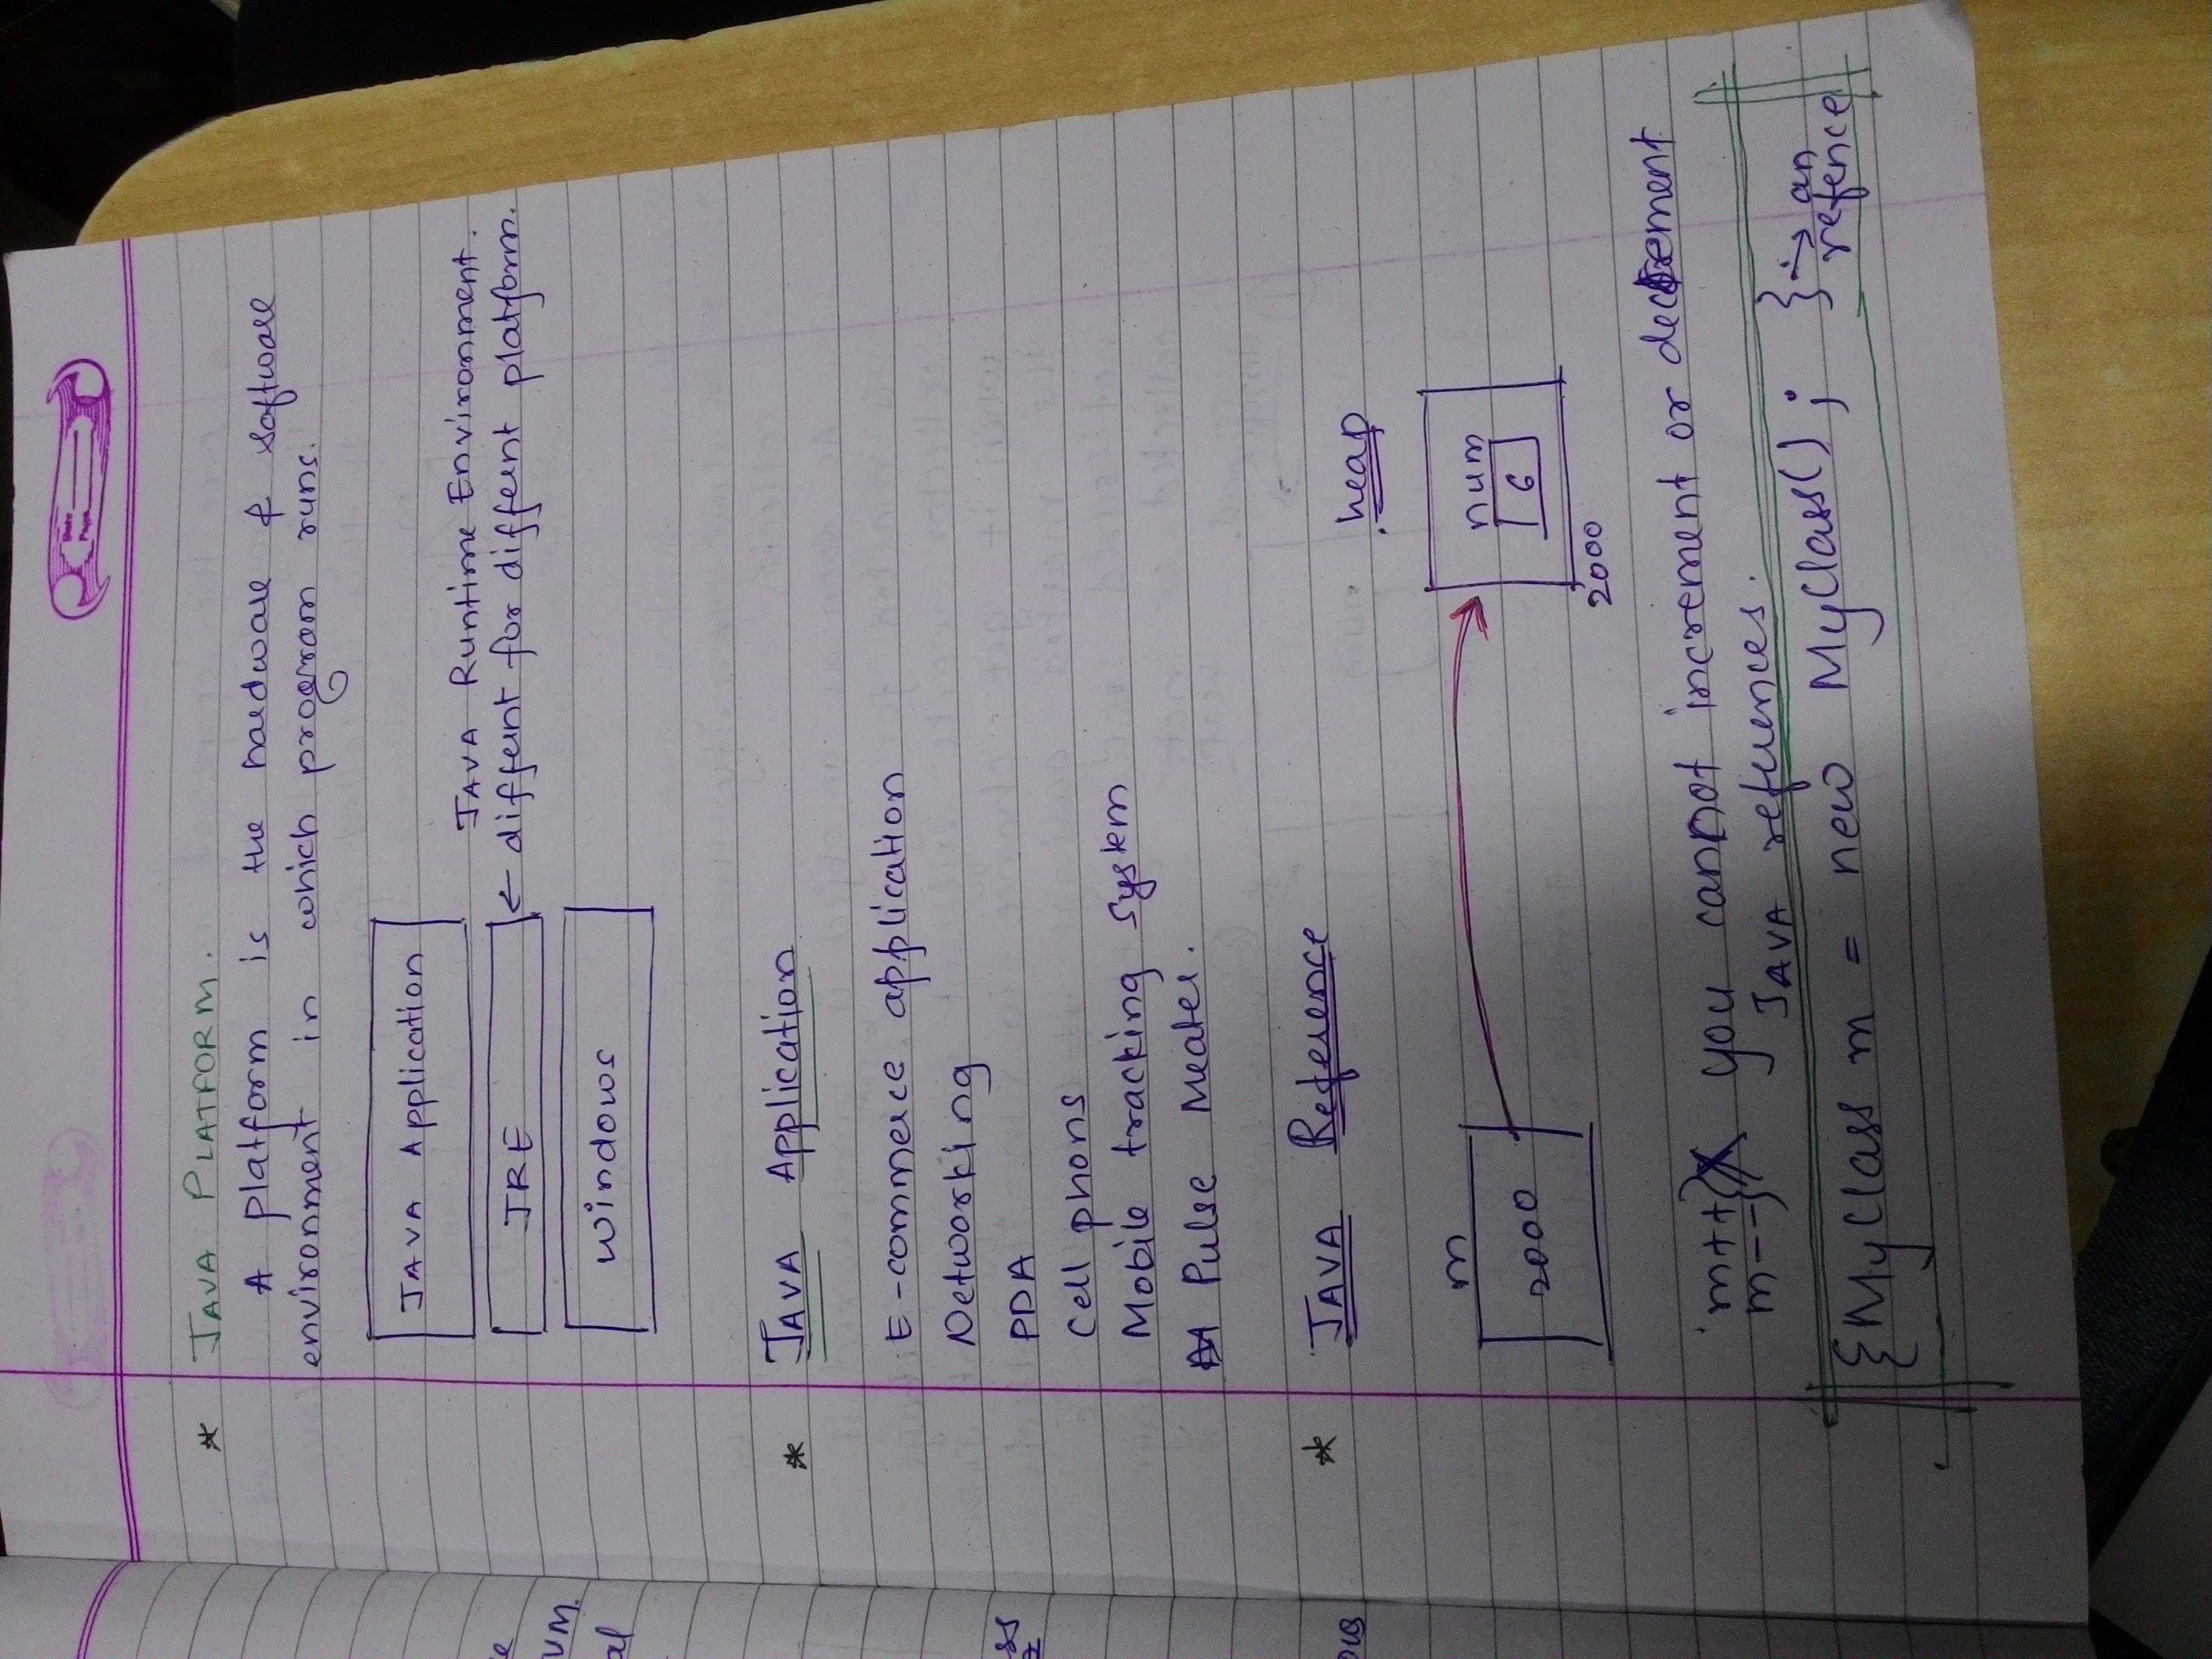 Date
Page
* JAVA PLATFORM.
A platform is the hardware & software
environment in which program runs.
JAVA Application
JAVA Runtime Environment.
JRE ← differnt for differnt platform.
Windows
* JAVA Application
E-commerce application
Networking
PDA
Cell phons
Mobile tracking system
Pulse Meater.
* JAVA Reference
heap
m
num
2000
6
2000
m++ } X you cannot increment or decrement
m-- } JAVA references.
{MyClass m = new MyClass(); } → an
refence
e
UM.
al
ss